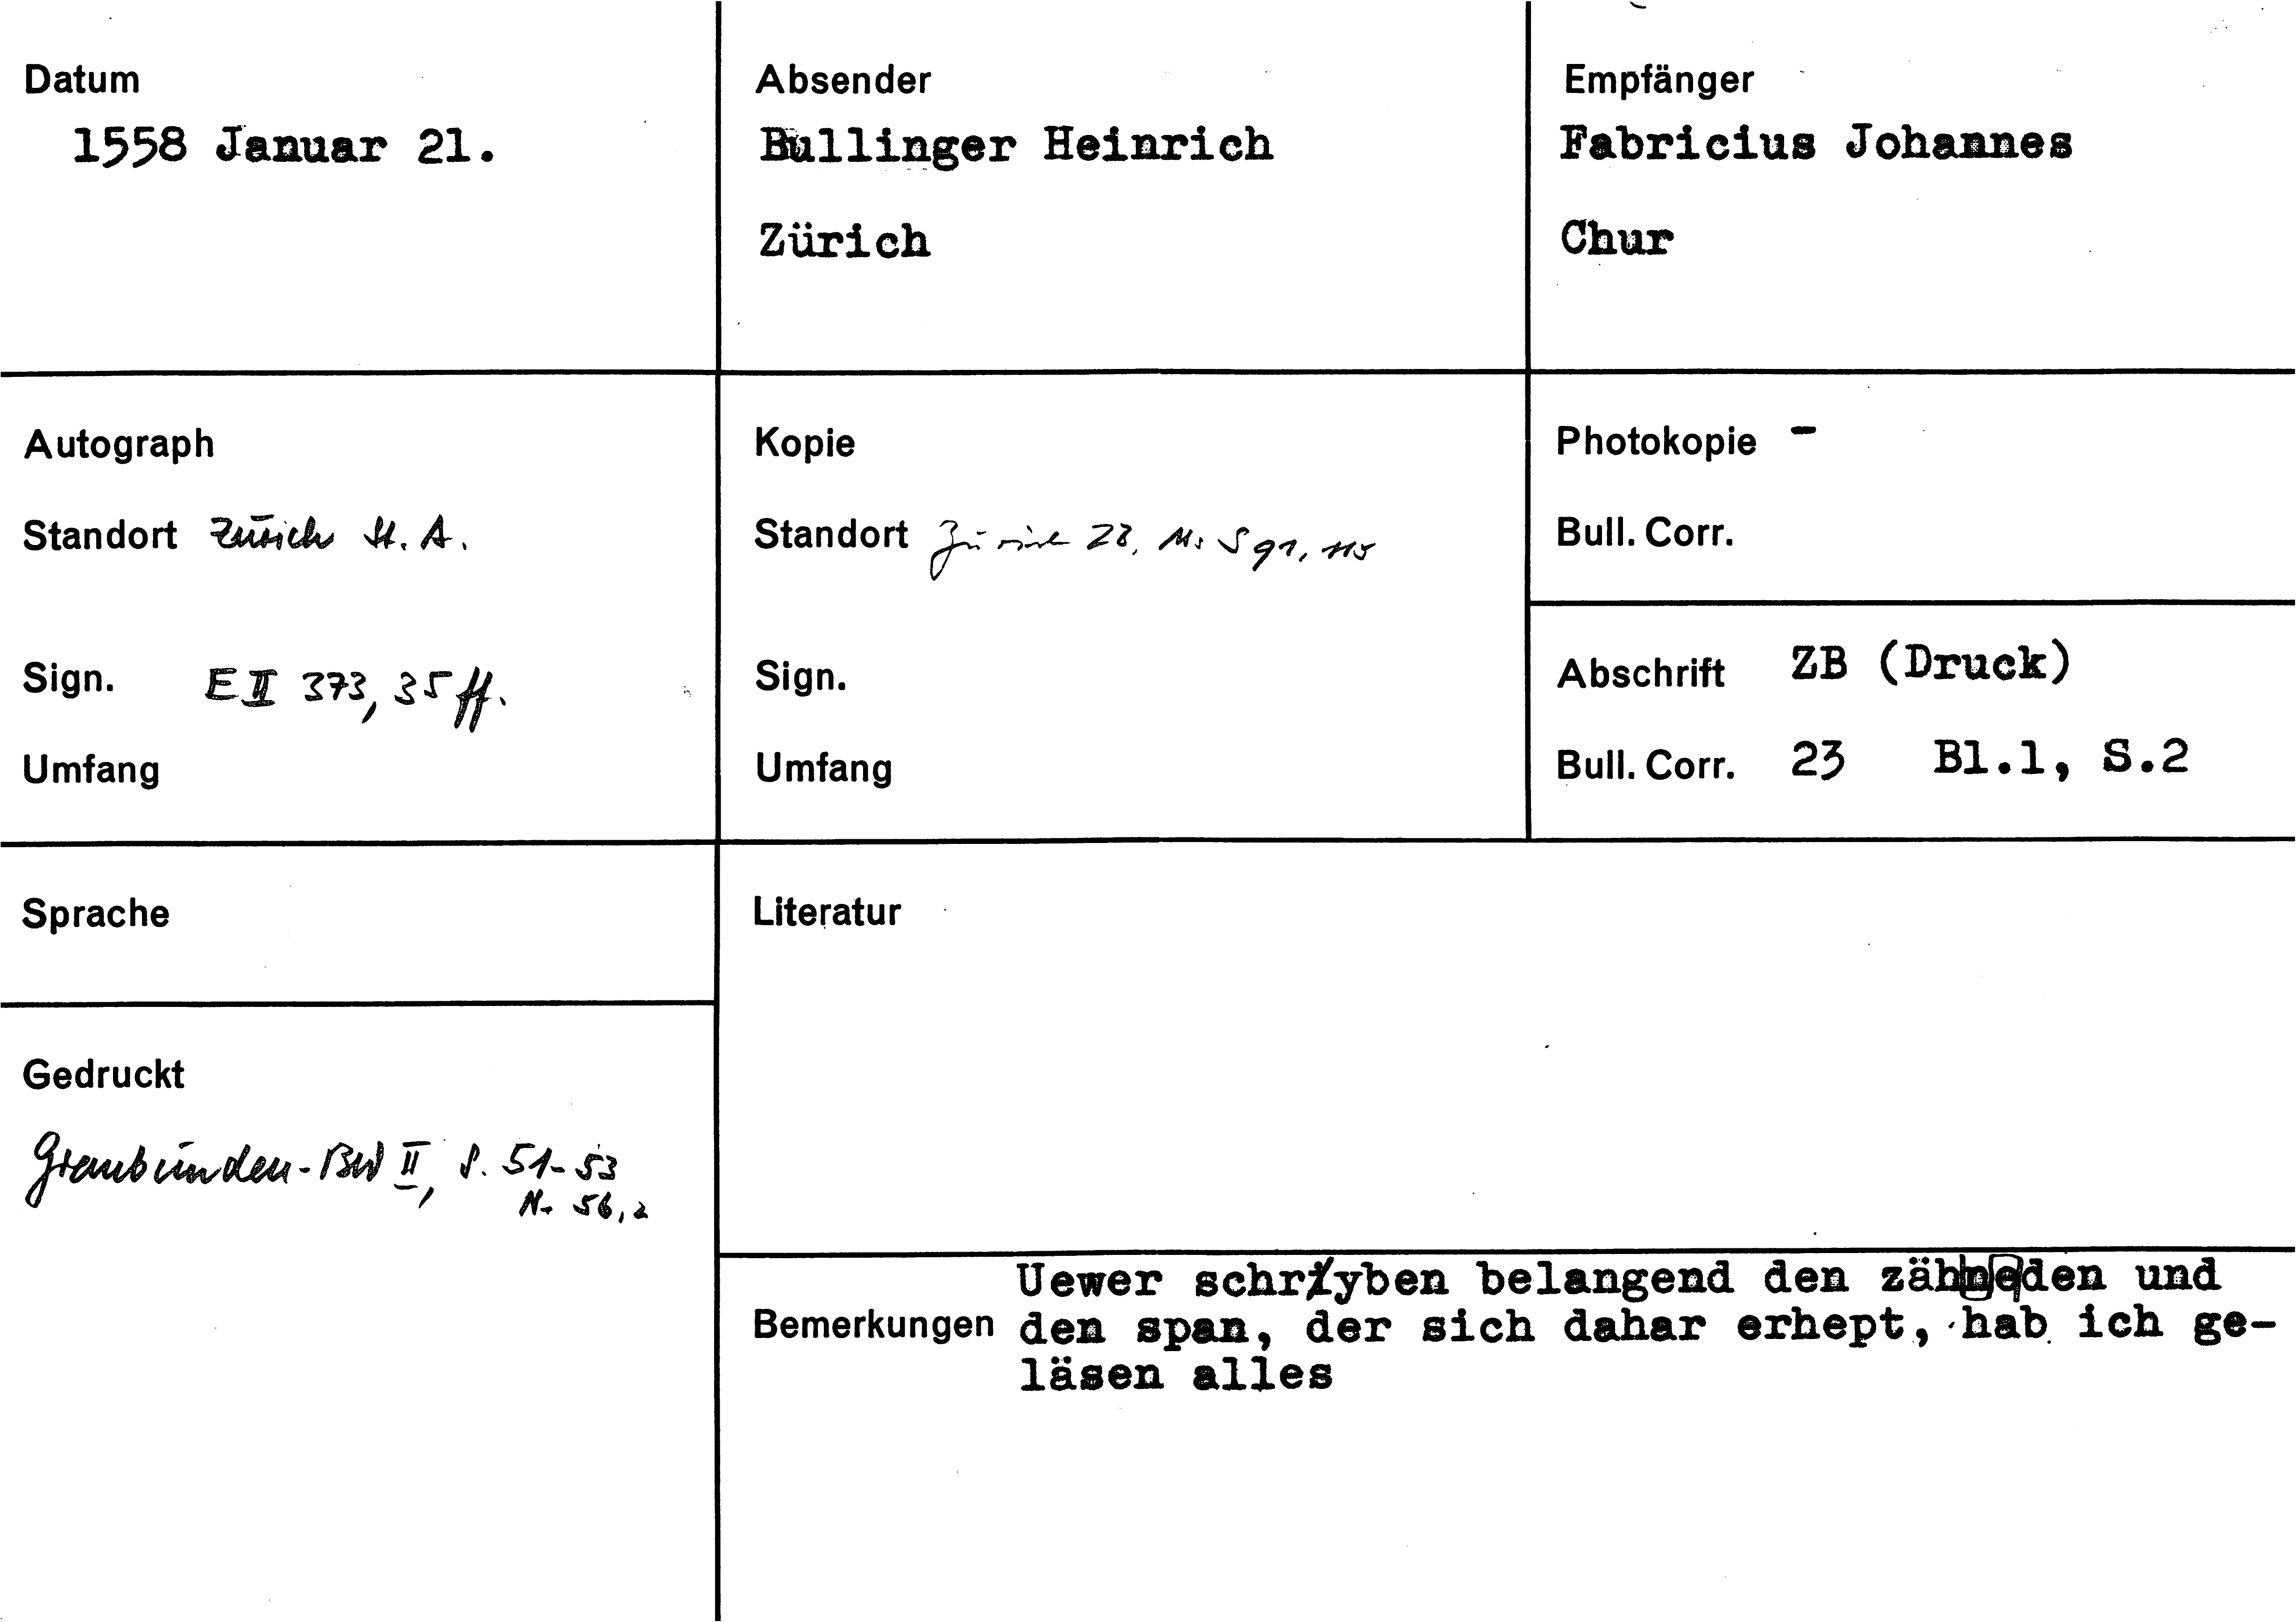 Datum
1558 Januar 21.
Absender
Bullinger Heinrich
Zürich
Empfänger
Fabricius Johannes
Chur
Autograph
Standort Zürich St. A.
Sign. E II 373, 35 ff.
Umfang
Kopie
Standort Zürich ZB, Ms S 91, 115
Sign.
Umfang
Photokopie -
Bull. Corr.
Abschrift ZB (Druck)
Bull. Corr. 23 Bl.1, S.2
Sprache
Literatur
Gedruckt
Graubünden-BW II, S. 51-53
N. 56,2
Bemerkungen
Uewer schryben belangend den zähenden und
den span, der sich dahar erhept, hab ich ge-
läsen alles